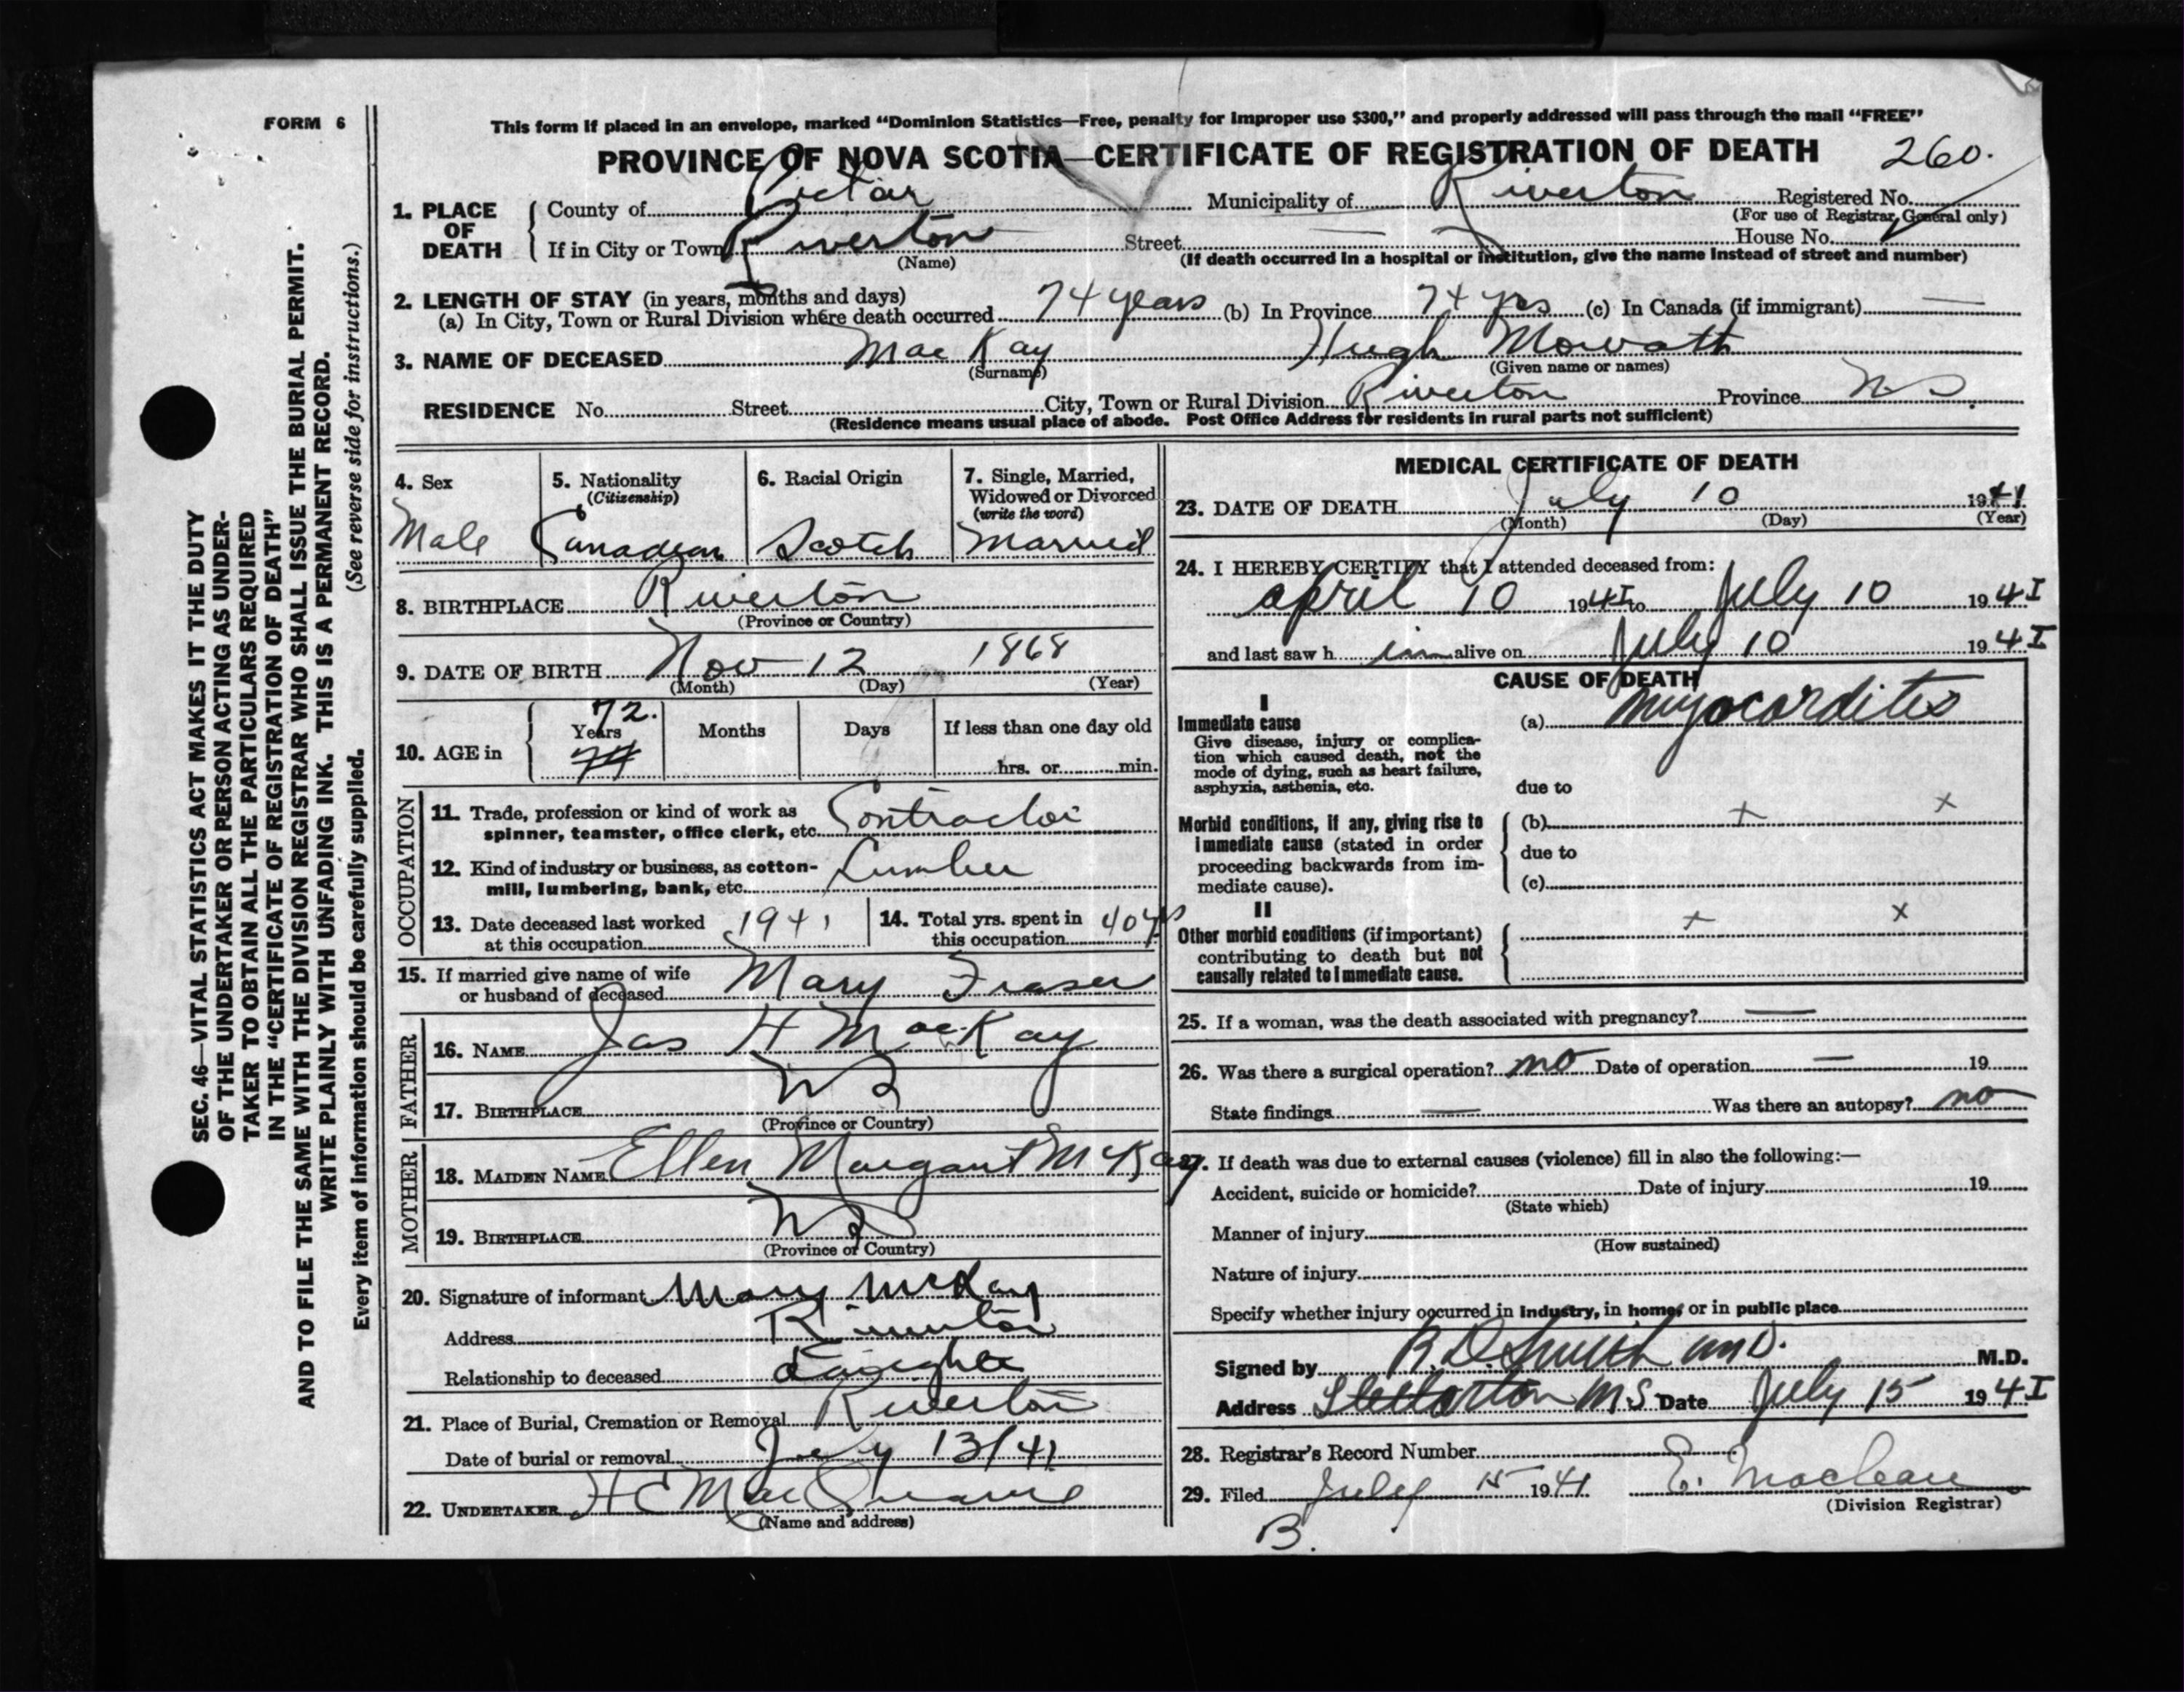 FORM 6
This form if placed in an envelope, marked “Dominion Statistics—Free, penalty for improper use $300,” and properly addressed will pass through the mail “FREE”
PROVINCE OF NOVA SCOTIA—CERTIFICATE OF REGISTRATION OF DEATH 260.
1. PLACE OF DEATH
County of Pictou Municipality of Riverton Registered No.
(For use of Registrar General only)
If in City or Town Riverton Street — House No.
(Name) (If death occurred in a hospital or institution, give the name instead of street and number)
2. LENGTH OF STAY (in years, months and days)
(a) In City, Town or Rural Division where death occurred 74 years (b) In Province 74 yrs (c) In Canada (if immigrant) —
3. NAME OF DECEASED MacKay Hugh Mowatt
(Surname) (Given name or names)
RESIDENCE No. Street City, Town or Rural Division Riverton Province N.S.
(Residence means usual place of abode. Post Office Address for residents in rural parts not sufficient)
4. Sex
Male
5. Nationality
(Citizenship)
Canadian
6. Racial Origin
Scotch
7. Single, Married,
Widowed or Divorced
(write the word)
Married
8. BIRTHPLACE Riverton
(Province or Country)
9. DATE OF BIRTH Nov 12 1868
(Month) (Day) (Year)
10. AGE in
72.
Years Months Days If less than one day old
74 hrs. or min.
OCCUPATION
11. Trade, profession or kind of work as
spinner, teamster, office clerk, etc. Contractor
12. Kind of industry or business, as cotton-
mill, lumbering, bank, etc. Lumber
13. Date deceased last worked
at this occupation 1941
14. Total yrs. spent in
this occupation 40 yrs
15. If married give name of wife
or husband of deceased Mary Fraser
FATHER
16. NAME Jas H MacKay
17. BIRTHPLACE NS
(Province or Country)
MOTHER
18. MAIDEN NAME Ellen Margaret McKay
19. BIRTHPLACE NS
(Province or Country)
20. Signature of informant Mary McKay
Address Riverton
Relationship to deceased daughter
21. Place of Burial, Cremation or Removal Riverton
Date of burial or removal July 13/41
22. UNDERTAKER H E MacQuarrie
(Name and address)
MEDICAL CERTIFICATE OF DEATH
23. DATE OF DEATH July 10 1941
(Month) (Day) (Year)
24. I HEREBY CERTIFY that I attended deceased from:
April 10 1941 to July 10 1941
and last saw h im alive on July 10 1941
CAUSE OF DEATH
I
Immediate cause (a) myocarditis
Give disease, injury or complica-
tion which caused death, not the
mode of dying, such as heart failure,
asphyxia, asthenia, etc. due to
Morbid conditions, if any, giving rise to (b) + x
immediate cause (stated in order due to
proceeding backwards from im-
mediate cause). (c)
II
+ x
Other morbid conditions (if important)
contributing to death but not
causally related to immediate cause.
25. If a woman, was the death associated with pregnancy? —
26. Was there a surgical operation? no Date of operation — 19
State findings — Was there an autopsy? no
27. If death was due to external causes (violence) fill in also the following:—
Accident, suicide or homicide? Date of injury 19
(State which)
Manner of injury
(How sustained)
Nature of injury
Specify whether injury occurred in industry, in home, or in public place
Signed by R. D. Smith M.D. M.D.
Address Stellarton NS Date July 15 1941
28. Registrar's Record Number
29. Filed July 15 1941 E. Maclean
(Division Registrar)
B.
SEC. 46—VITAL STATISTICS ACT MAKES IT THE DUTY
OF THE UNDERTAKER OR PERSON ACTING AS UNDER-
TAKER TO OBTAIN ALL THE PARTICULARS REQUIRED
IN THE “CERTIFICATE OF REGISTRATION OF DEATH”
AND TO FILE THE SAME WITH THE DIVISION REGISTRAR WHO SHALL ISSUE THE BURIAL PERMIT.
WRITE PLAINLY WITH UNFADING INK. THIS IS A PERMANENT RECORD.
(See reverse side for instructions.)
Every item of information should be carefully supplied.